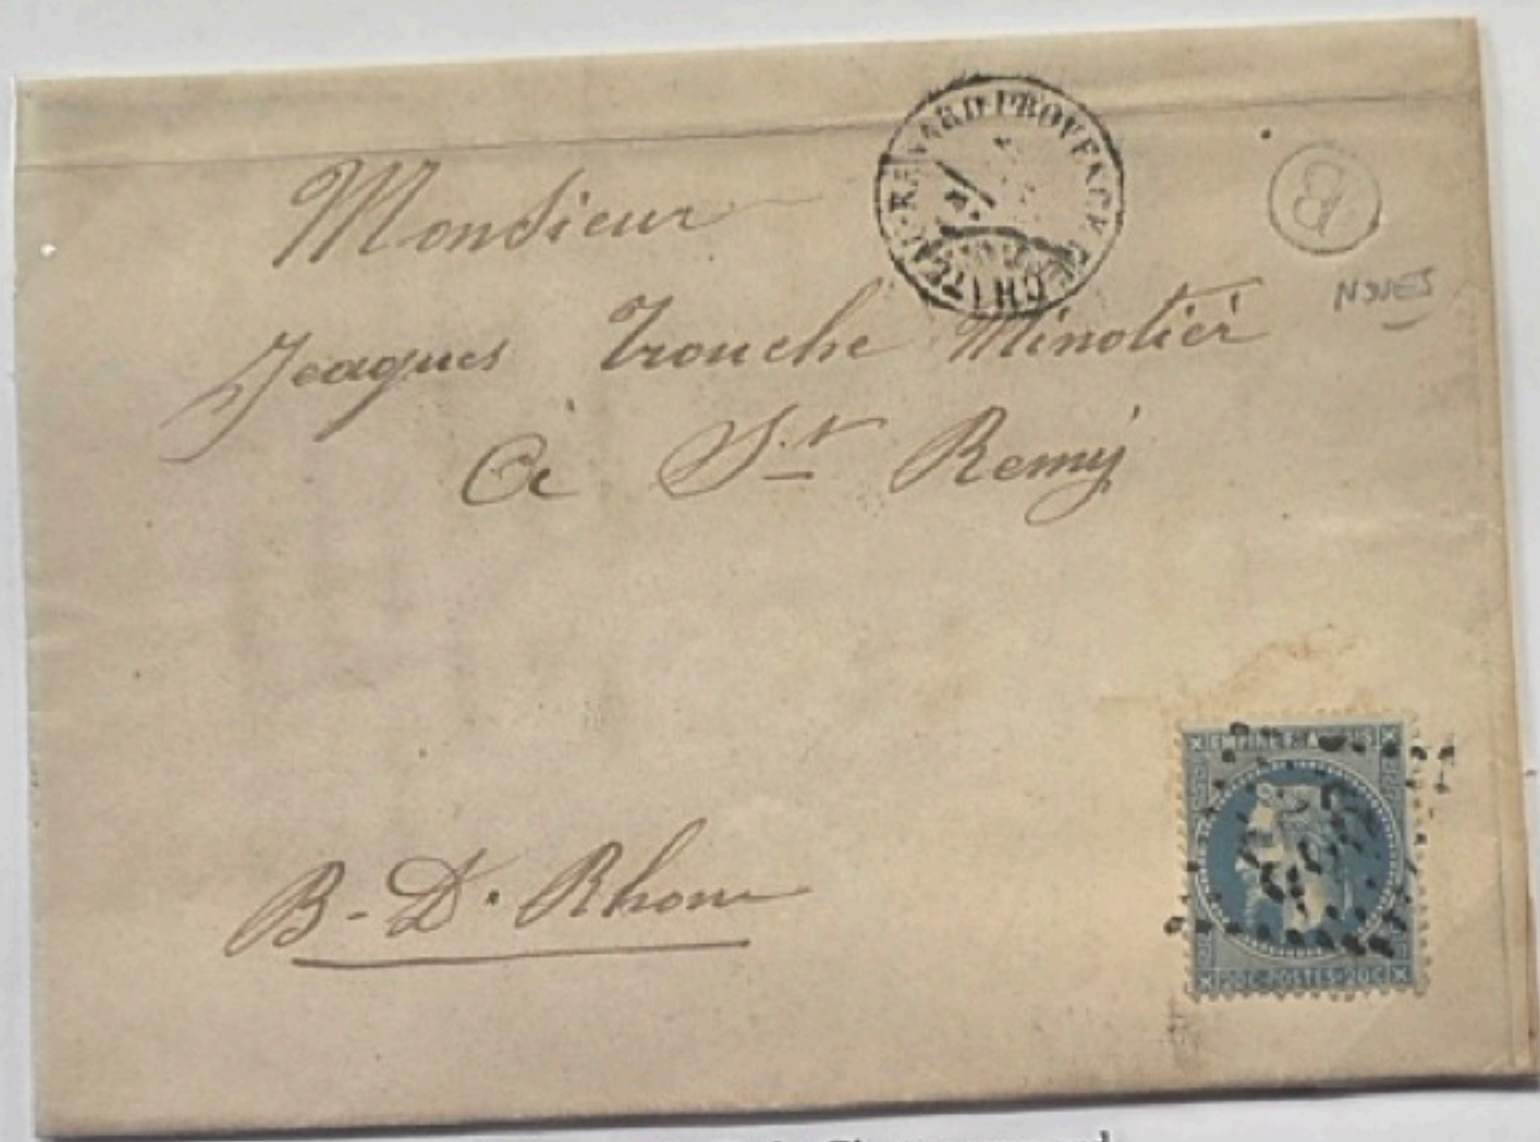 CHATEAU-RENARD-PROVENCE
B
NOVES
Monsieur
Jeaques Trouche Minotier
A St Remy
B-D. Rhone
EMPIRE FRANÇAIS
20C-POSTES-20C